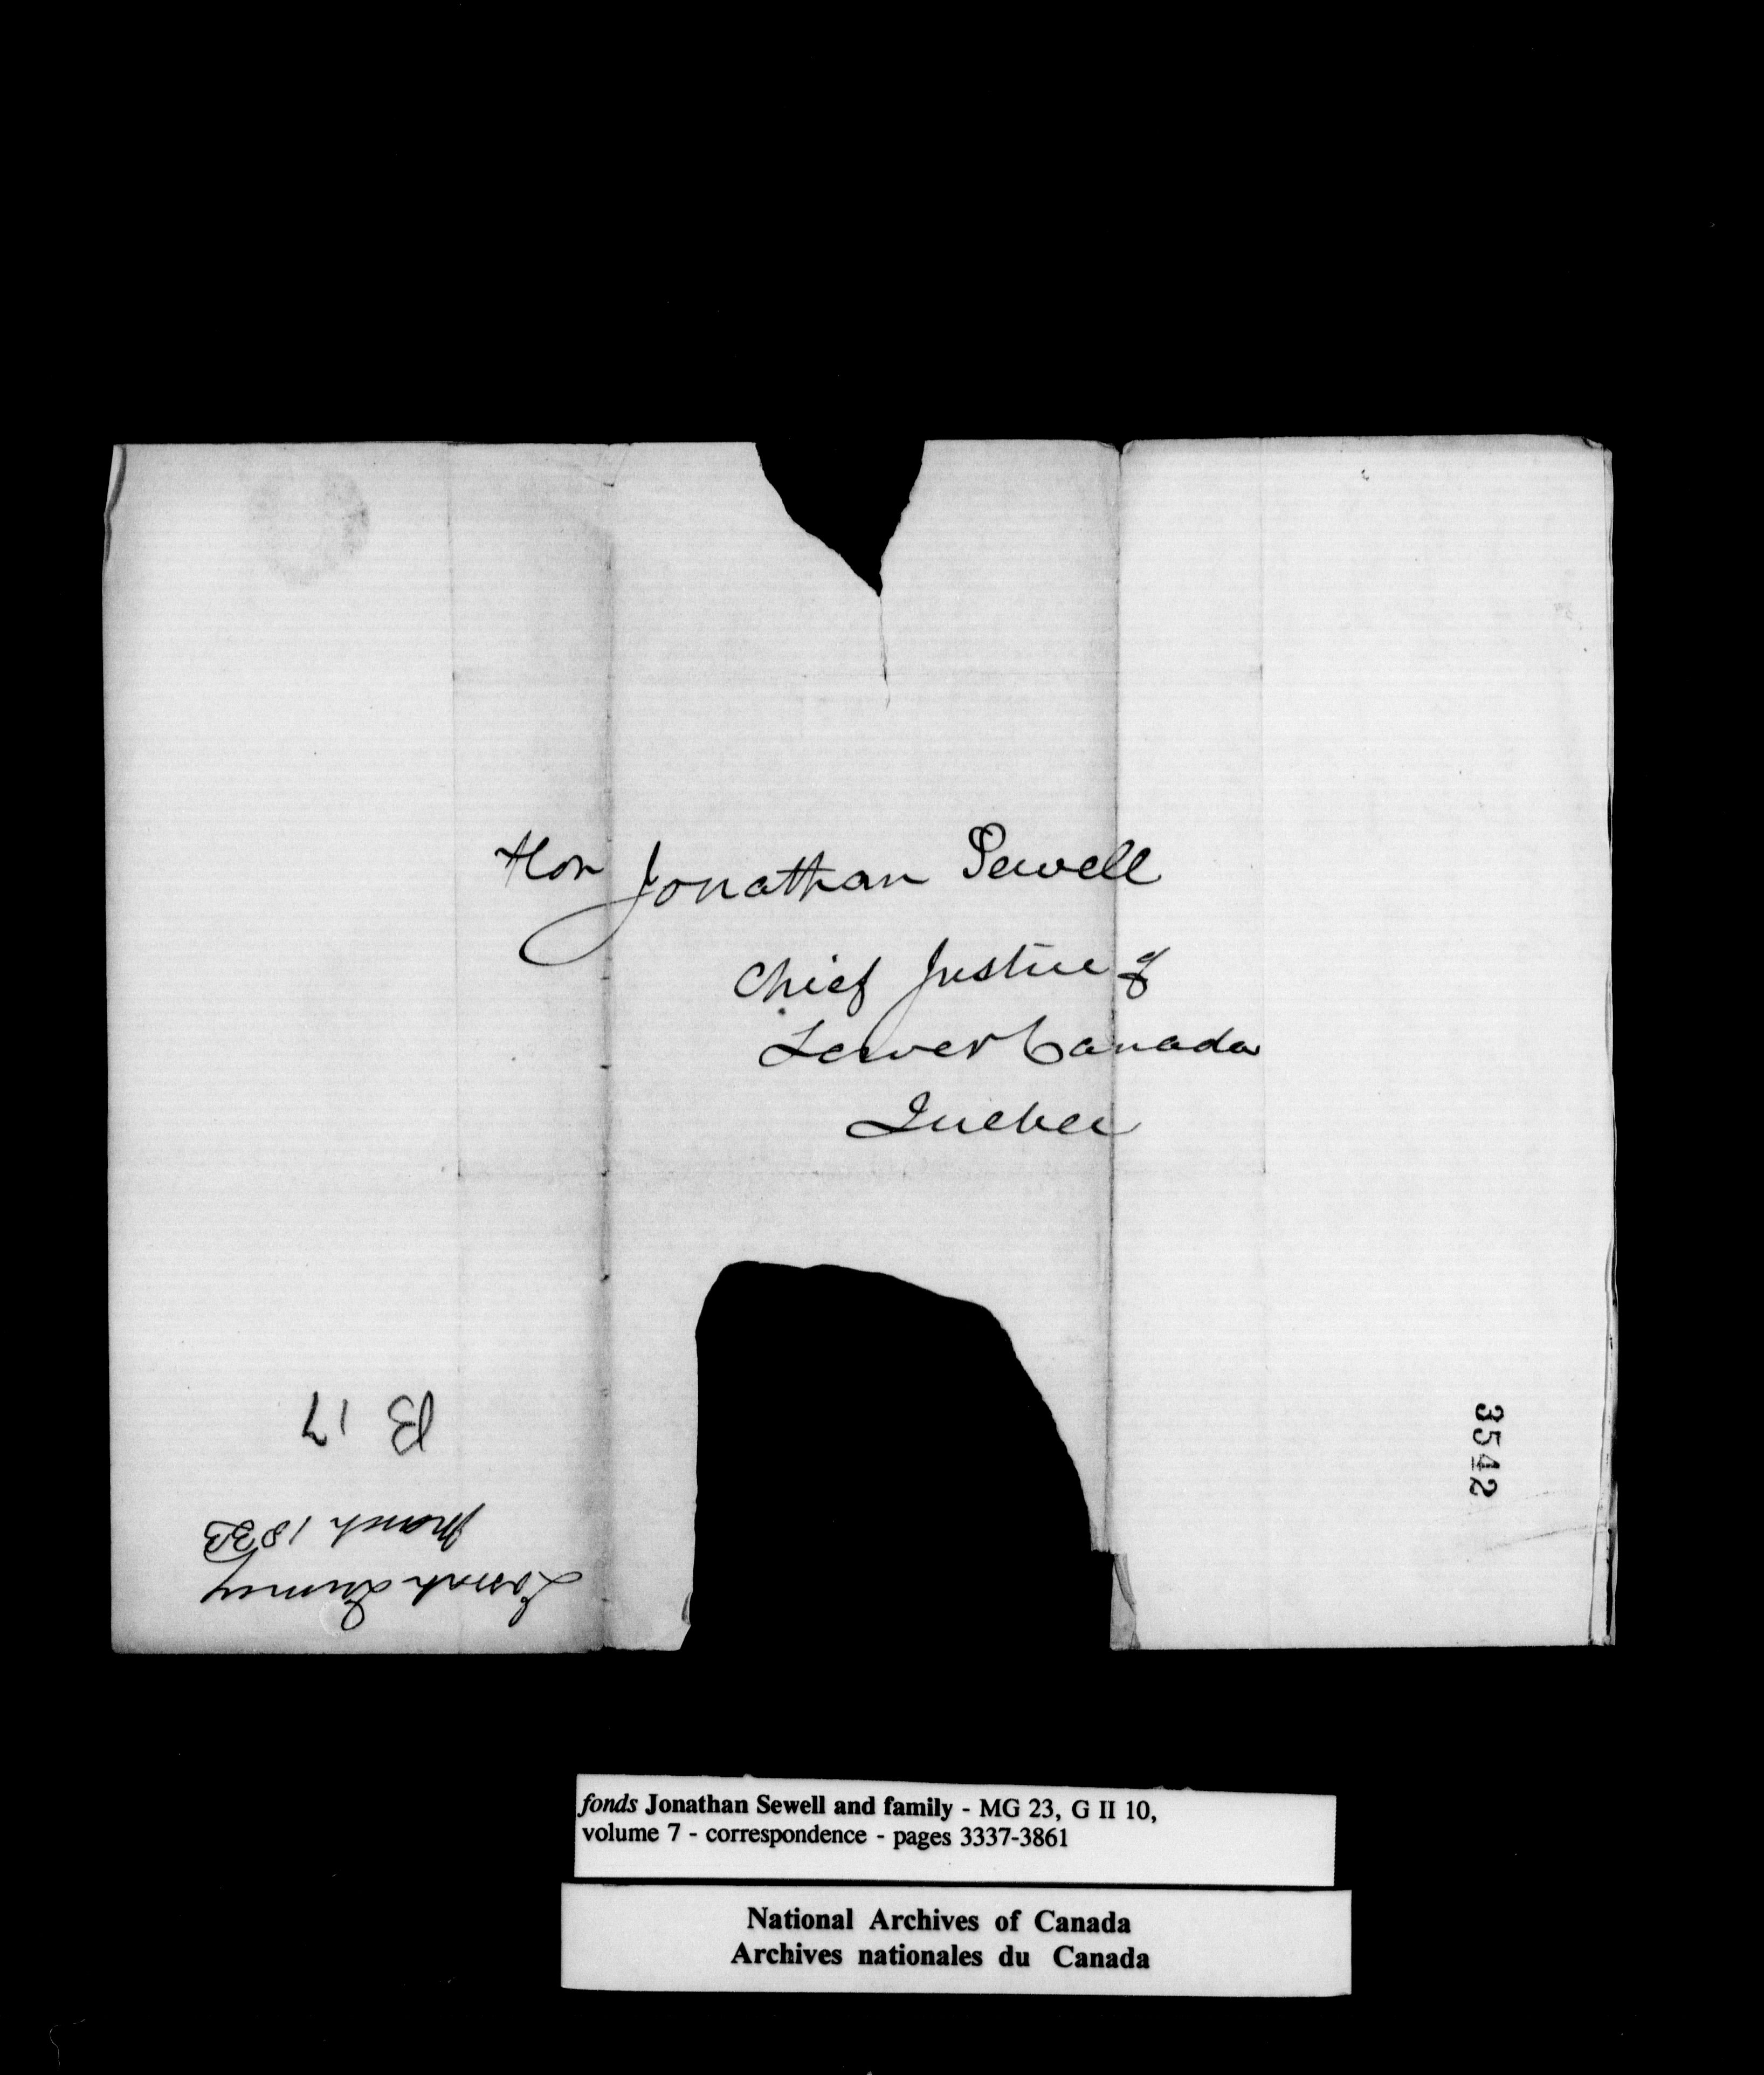 Hon Jonathan Sewell
Chief Justice of
Lower Canada
Quebec
B 17
March 1833
3542
fonds Jonathan Sewell and family - MG 23, G II 10,
volume 7 - correspondence - pages 3337-3861
National Archives of Canada
Archives nationales du Canada